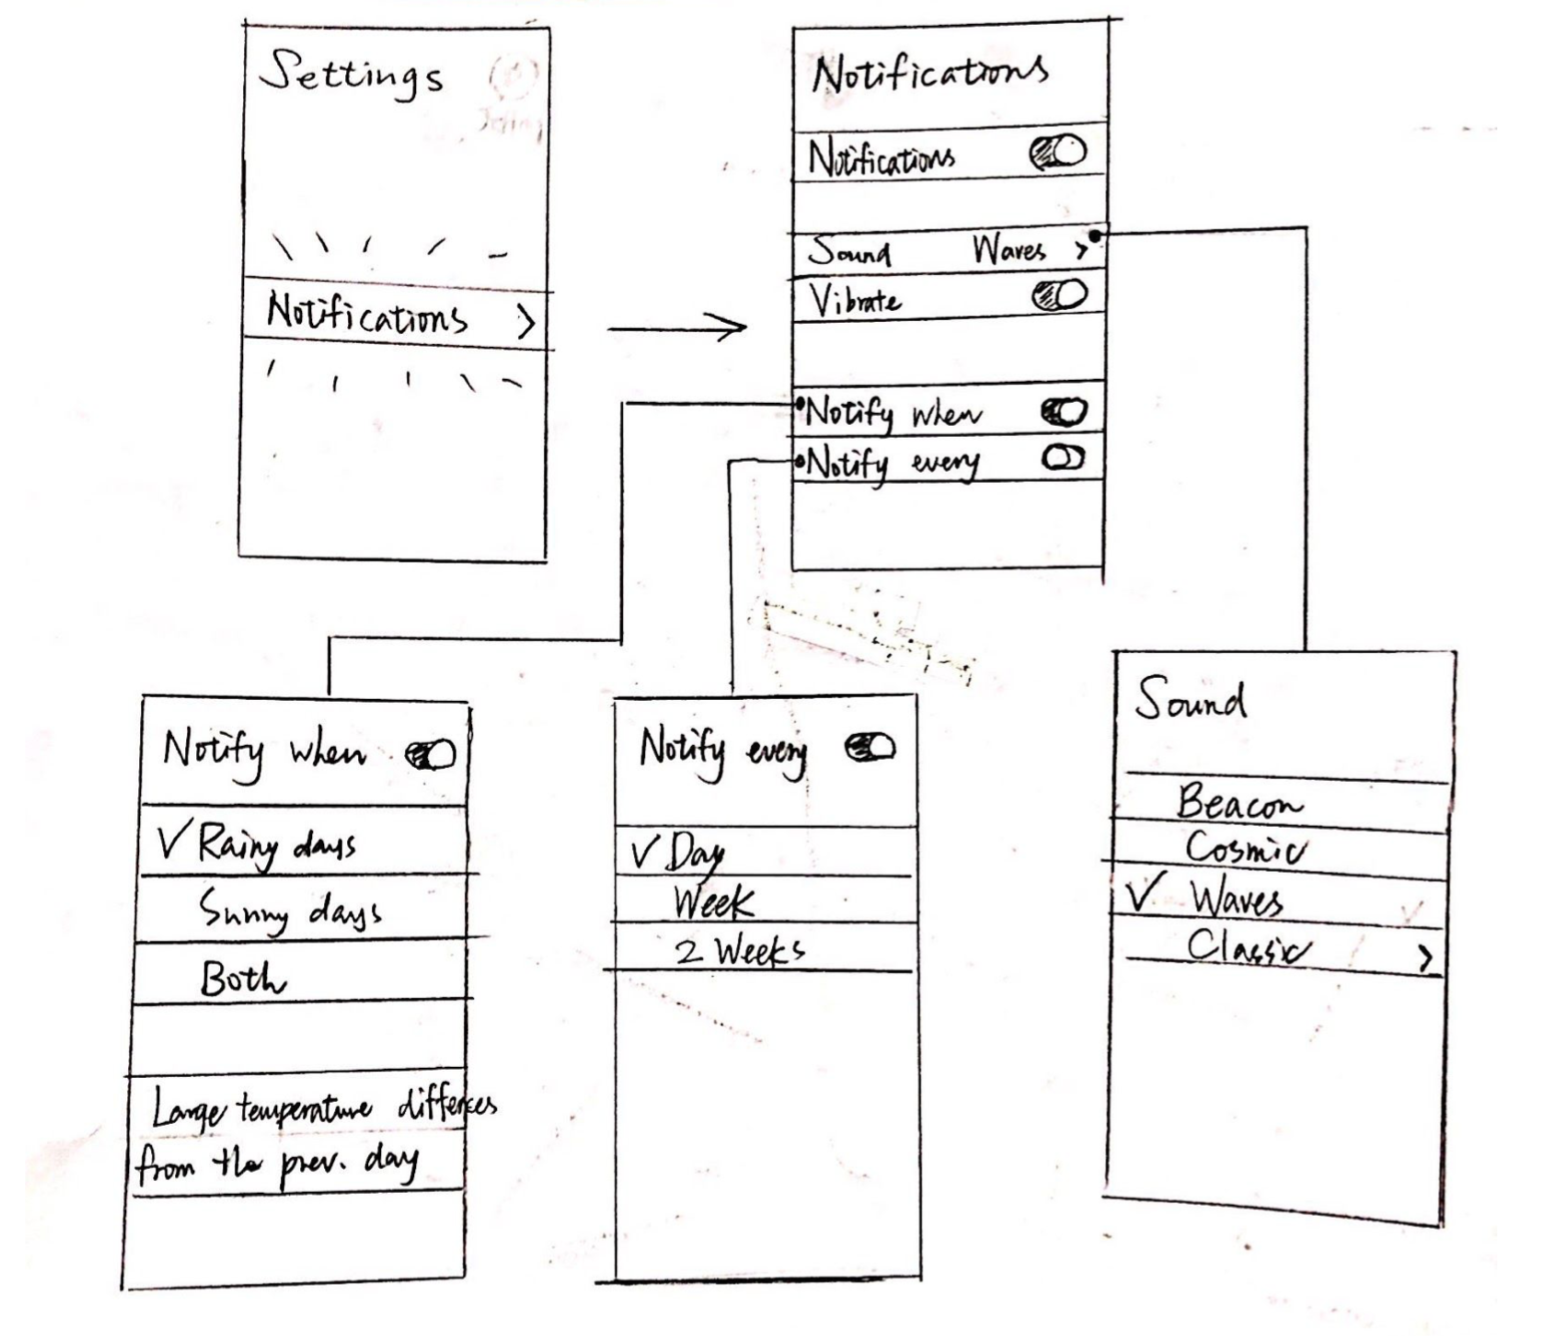 Settings
Notifications >
Notifications
Notifications
Sound Waves >
Vibrate
Notify when
Notify every
Notify when
✓ Rainy days
Sunny days
Both
Large temperature differces
from the prev. day
Notify every
✓ Day
Week
2 Weeks
Sound
Beacon
Cosmic
✓ Waves
Classic >